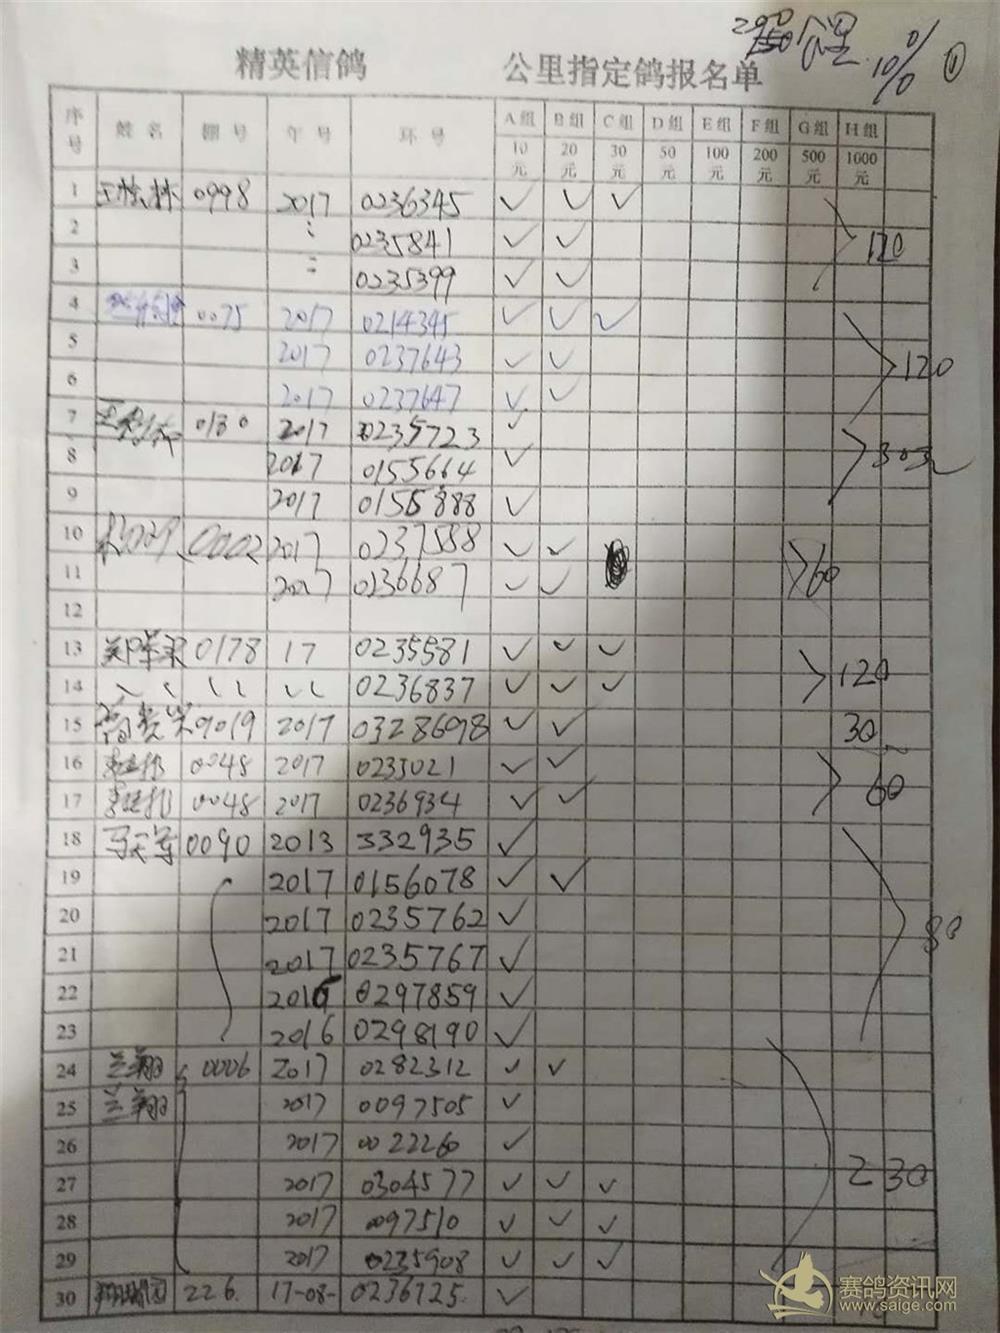 290 公里 10% ①
精英信鸽 公里指定鸽报名单
序号 姓名 棚号 年号 环号 A组 B组 C组 D组 E组 F组 G组 H组
10元 20元 30元 50元 100元 200元 500元 1000元
1 0998 2017 0236345 ✓ ✓ ✓
2 0235841 ✓ ✓ 120
3 0235399 ✓ ✓
4 0075 2017 0214345 ✓ ✓ ✓
5 2017 0237643 ✓ ✓ 120
6 2017 0237647 ✓ ✓
7 0130 2017 0235723 ✓
8 2017 0155664 ✓ 30元
9 2017 0155888 ✓
10 0002 2017 0237588 ✓ ✓
11 2017 0236687 ✓ ✓ 60
12
13 0178 17 0235581 ✓ ✓ ✓
14 0236837 ✓ ✓ ✓ 120
15 0019 2017 0328698 ✓ ✓ 30
16 0048 2017 0235021 ✓ ✓
17 0048 2017 0236934 ✓ ✓ 60
18 0090 2013 332935 ✓
19 2017 0156078 ✓ ✓
20 2017 0235762 ✓ 80
21 2017 0235767 ✓
22 0297859 ✓
23 2016 0298190 ✓
24 兰翔 0006 2017 0282312 ✓ ✓
25 兰翔 2017 0097505 ✓
26 2017 0022260 ✓
27 2017 0304577 ✓ ✓ ✓ 230
28 2017 0097510 ✓ ✓ ✓
29 2017 0235908 ✓ ✓ ✓
30 226 17-08- 0236725 ✓
赛鸽资讯网
www.saige.com